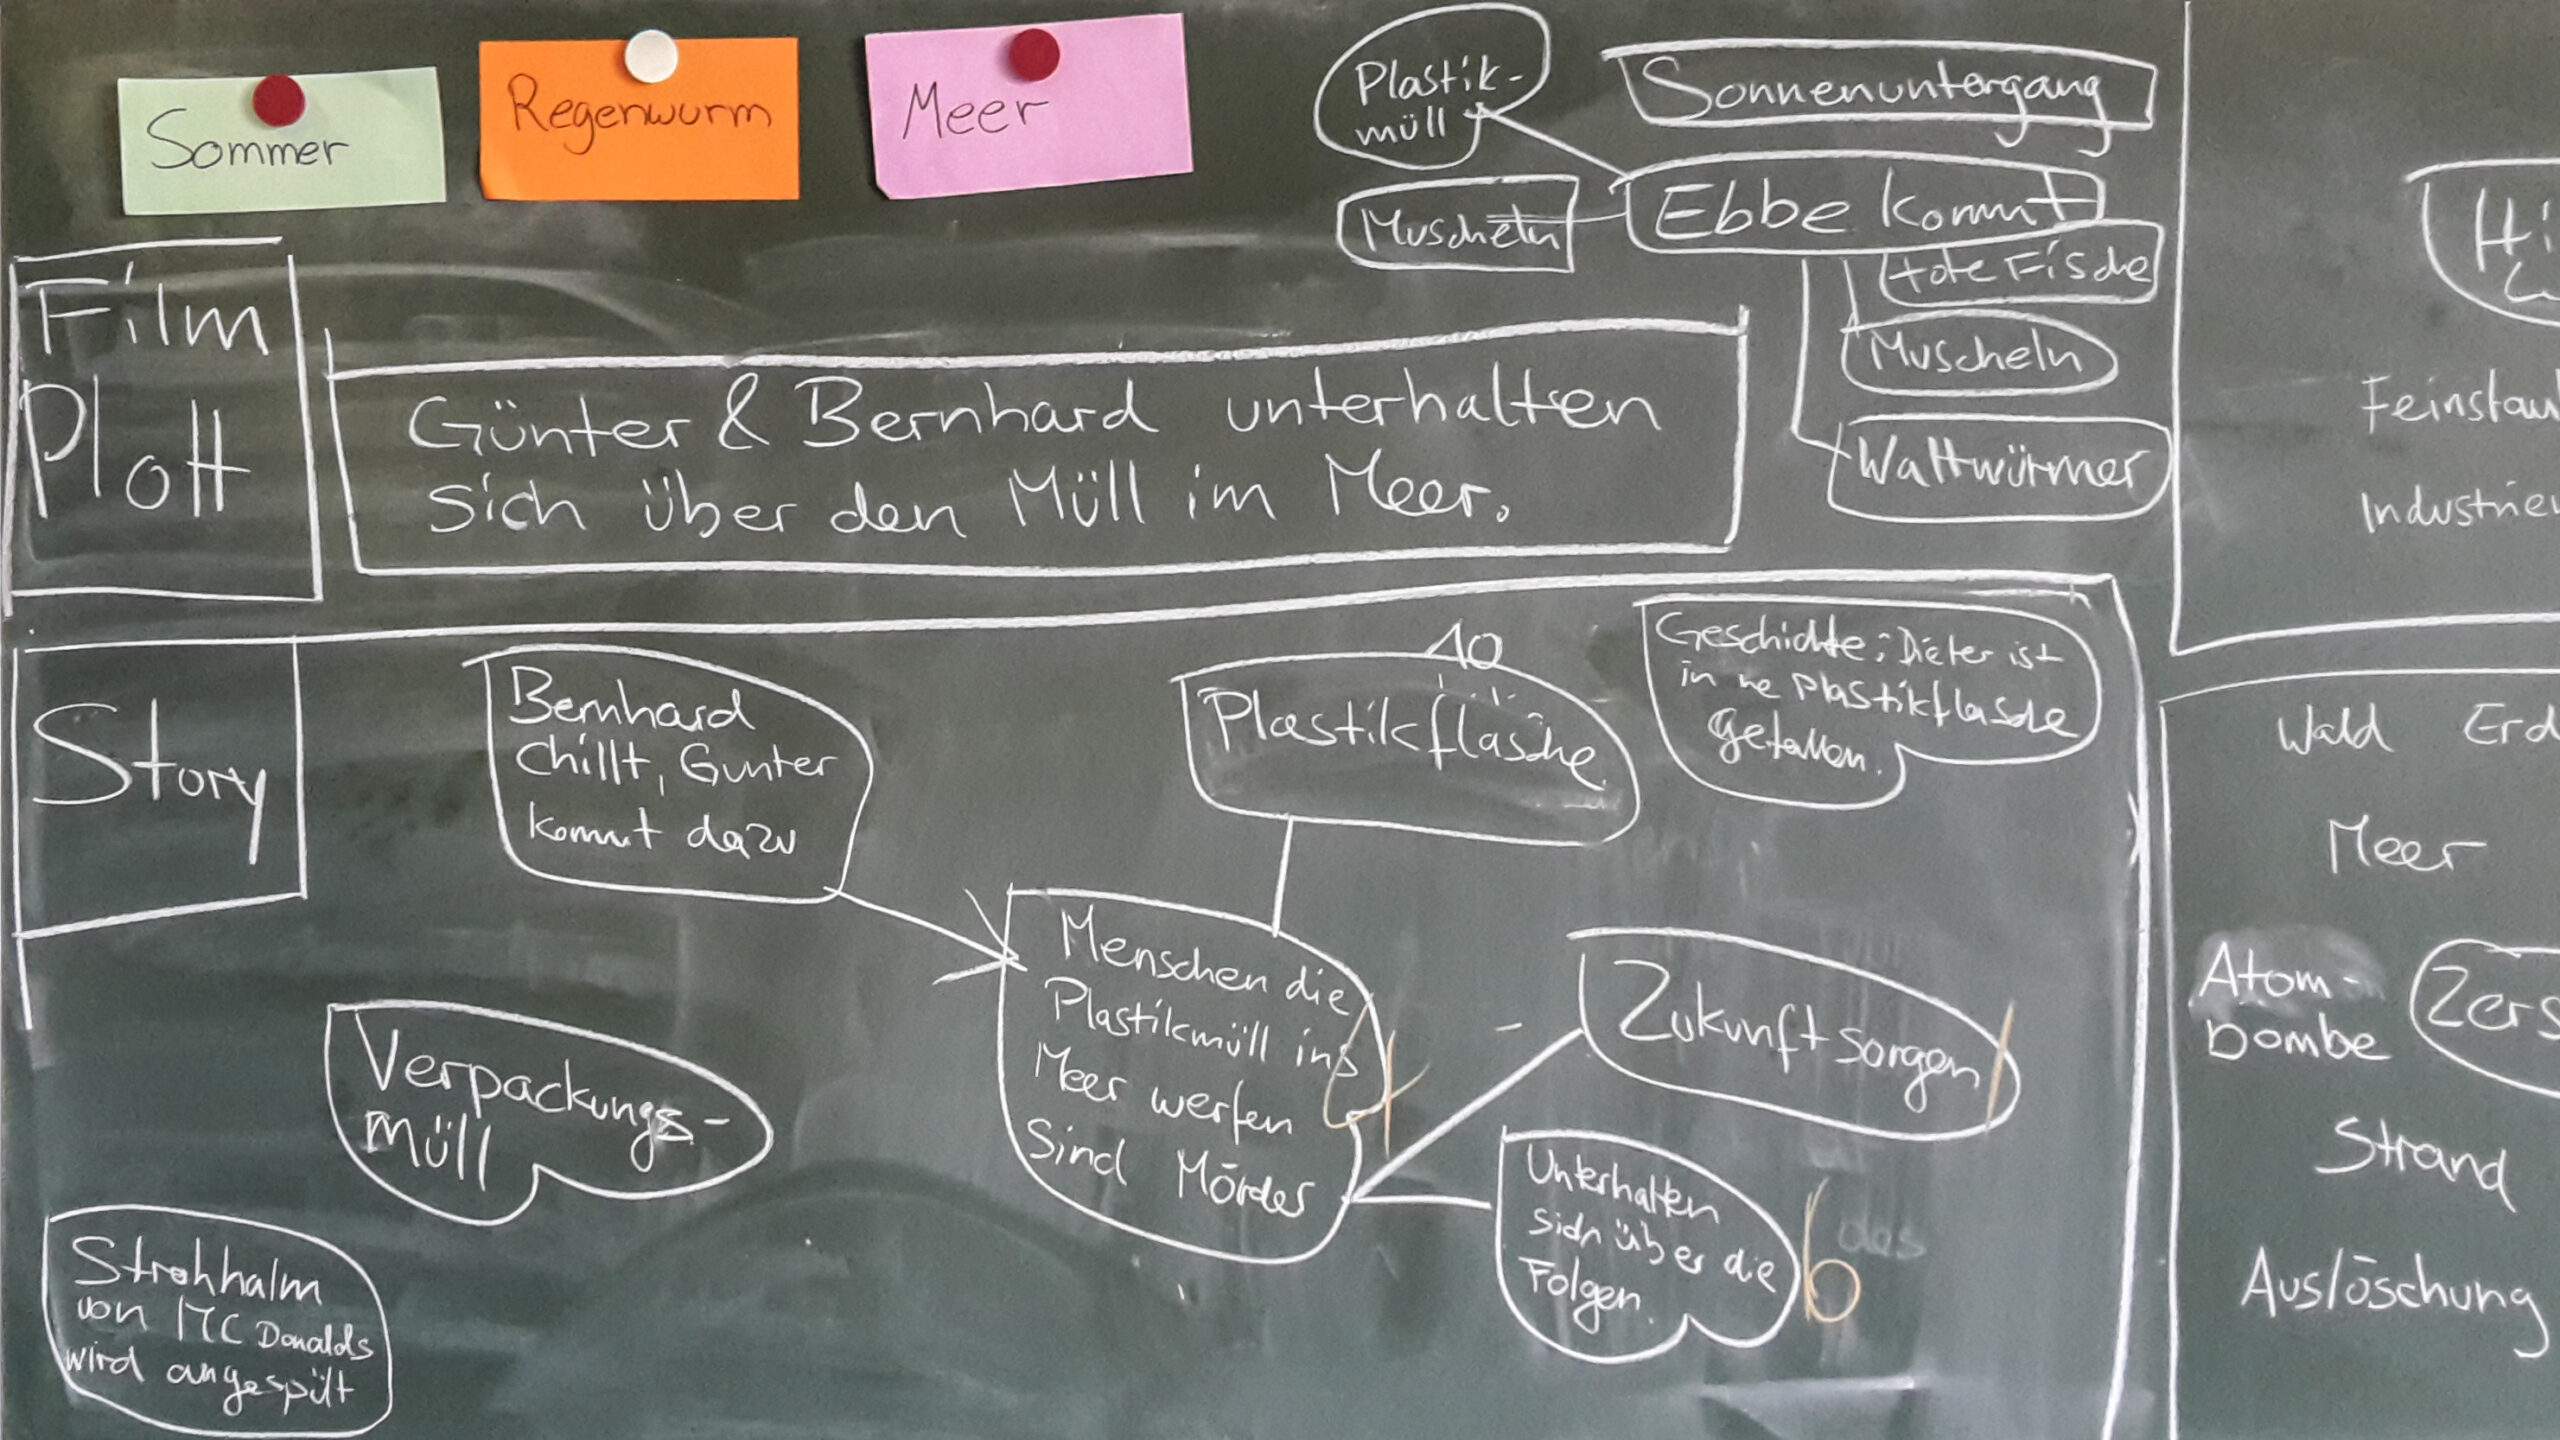 Sommer
Regenwurm
Meer
Plastik-
müll
Sonnenuntergang
Muscheln
Ebbe kommt
tote Fische
Muscheln
Wattwürmer
Film
Plott
Günter & Bernhard unterhalten
sich über den Müll im Meer.
Story
Bernhard
chillt, Gunter
kommt dazu
10
Plastikflasche
Geschichte: Dieter ist
in ne Plastikflasche
gefallen.
Menschen die
Plastikmüll ins
Meer werfen
sind Mörder
Zukunftsorgen
Unterhalten
sich über die
Folgen.
das
6
Verpackungs-
müll
Strohhalm
von MC Donalds
wird angespült
Hi
Feinstau
Industrie
Wald Erd
Meer
Atom-
bombe
Zers
Strand
Auslöschung